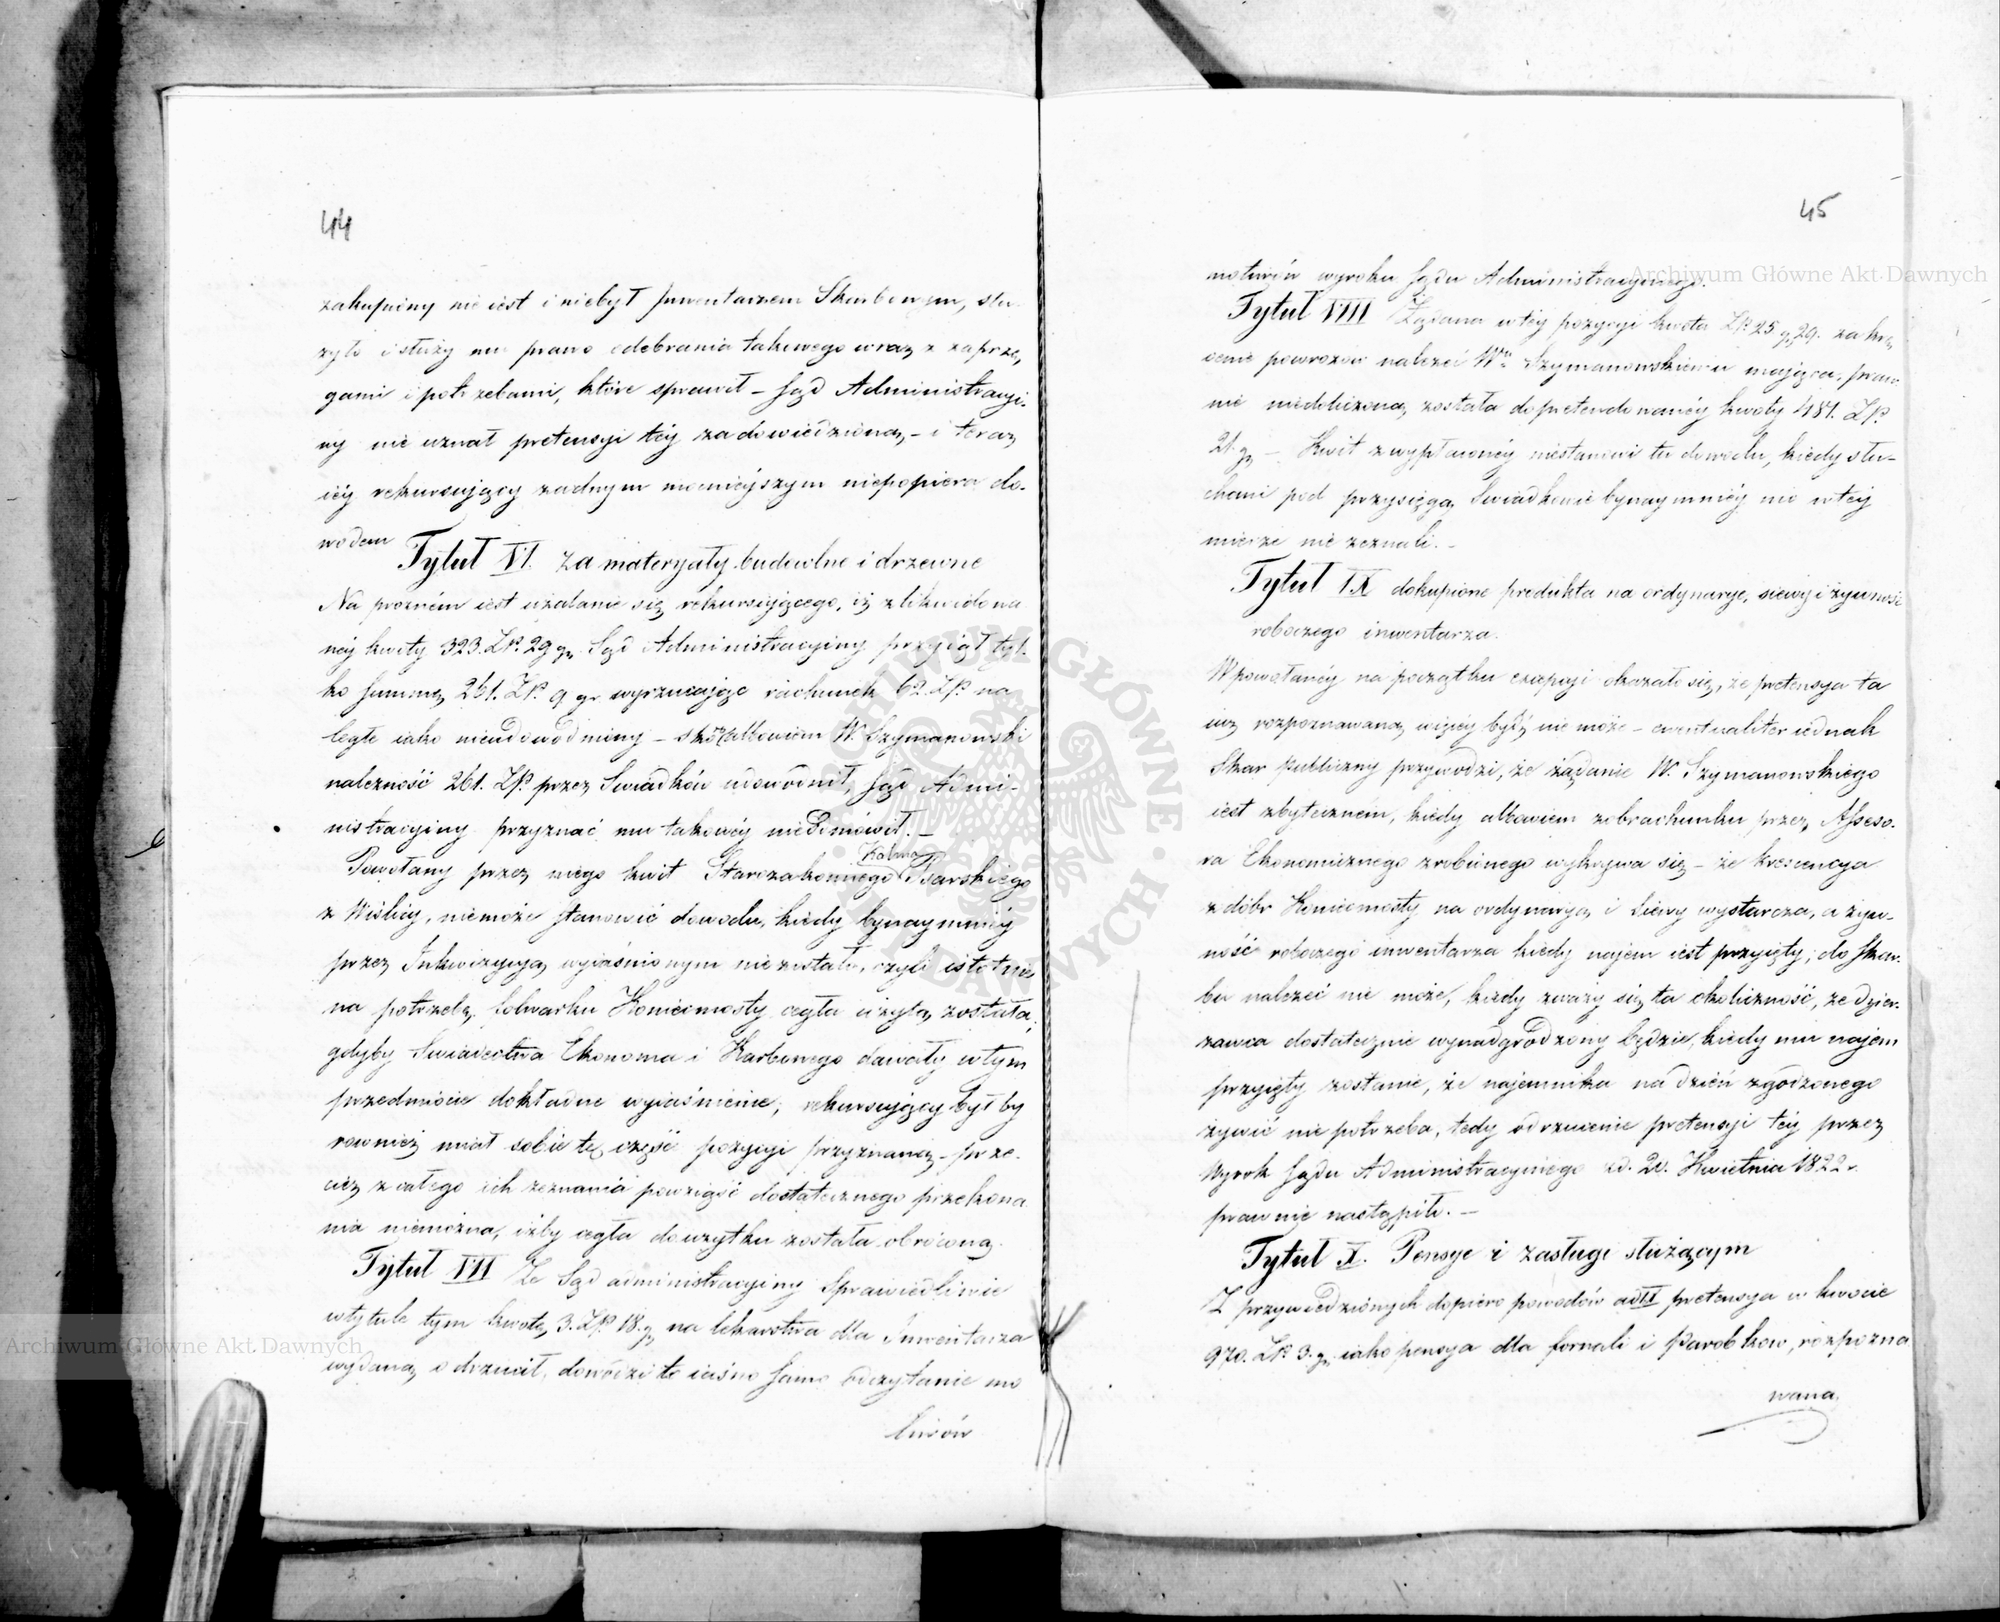 44
zakupiony nie iest i niebył Inwentarzem Skarbowym, słu
żyło i służy mu prawo odebrania takowego wraz z zaprzę
gami i potrzebami, które sprawił – Sąd Administracyi.
ny nie uznał pretensyi téy za dowiedzioną – i teraz
iéy rekursuiący żadnym mocnieyszym niepopiera do.
wodem
Tytuł VI. za materyały budowlne i drzewne
Na prożném iest użalanie się rekursuiącego, iż z likwidowa
néy kwoty 323. Zł. 29 gr. Sąd Administracyiny przyiął tyl.
ko Summę 261. Zł. 9 gr. wyrzucaiąc rachunek 62. Zł. na
ległe iako nieudowodniony – skoro albowiem W. Szymanowski
należność 261. Zł. przez Swiadków udowodnił, Sąd Admi-
nistracyiny przyznać mu takowéy nieodmówił. –
Powołany przez niego kwit Starozakonnego Kalma Psarskiego
z Wiślicy, niemoże stanowić dowodu, kiedy bynaymniéy
przez Inkwizycyą wyiaśnionym nie zostało, czyli istotnie
na potrzebę folwarku Koniecmosty cegła użytą została;
gdyby Swiadectwa Ekonoma i Karbowego dawały w tym
przedmiocie dokładne wyiaśnienie, rekursuiący byłby
rownież miał sobie tę część pozycyi przyznaną – prze.
cież z całego ich zeznania powziąść dostatecznego przekona
nia niemożna, iżby cegła do użytku została obróconą.
Tytuł VII Że Sąd administracyiny Sprawiedliwie
w tytule tym kwotę 3. Zł. 18. gr. na lekarstwa dla Inwentarza
wydaną odrzucił, dowodzi to iasno samo odczytanie mo
tiwów
45
motiwów wyroku Sądu Administracyinego.
Tytuł VIII Żądana w téy pozycyi kwota Zł. 25 gr. 29. za krę
cenie powrozow należeć Wmu Szymanowskiemu maiąca, praw
nie niedoliczoną została do pretendowanéy kwoty 481. Zł.
21. gr. – Kwit z wypłaconéy niestanowi tu dowodu, kiedy słu-
chani pod przysięgą Swiadkowie bynaymniéy nic w téy
mierze nie zeznali. –
Tytuł IX dokupione produkta na ordynarye, siewy i żywność
roboczego inwentarza.
W powołanéy na początku excepcyi okazało się, że pretensya ta
iuż rozpoznawaną więcéy bydź nie może – eventualiter iednak
Skar publiczny przywodzi, że żądanie W. Szymanowskiego
iest zbytecznem, kiedy albowiem z obrachunku przez Assesso.
ra Ekonomicznego zrobionego wykrywa się – że krescencya
z dóbr Koniecmosty na ordynaryą i siewy wystarcza, a żyw-
ność roboczego inwentarza kiedy najem iest przyięty; do Skar.
bu należeć nie może, kiedy zważy się ta okoliczność, że dzier.
zawca dostatecznie wynadgrodzony będzie, kiedy mu najem
przyięty zostanie, że najemnika na dzień zgodzonego
żywić nie potrzeba, tedy odrzucenie pretensyi téy przez
Wyrok Sądu Administracyinego z d. 20. Kwietnia 1822 r.
prawnie nastąpiło. –
Tytuł X. Pensye i zasługi służącym
Z przywiedzionych dopiero powodów ad IX pretensya w kwocie
970. Zł. 3. gr. iako pensya dla fornali i Parobkow, rozpozna
waną
Archiwum Główne Akt Dawnych
Archiwum Główne Akt Dawnych
ARCHIWUM GŁÓWNE AKT DAWNYCH